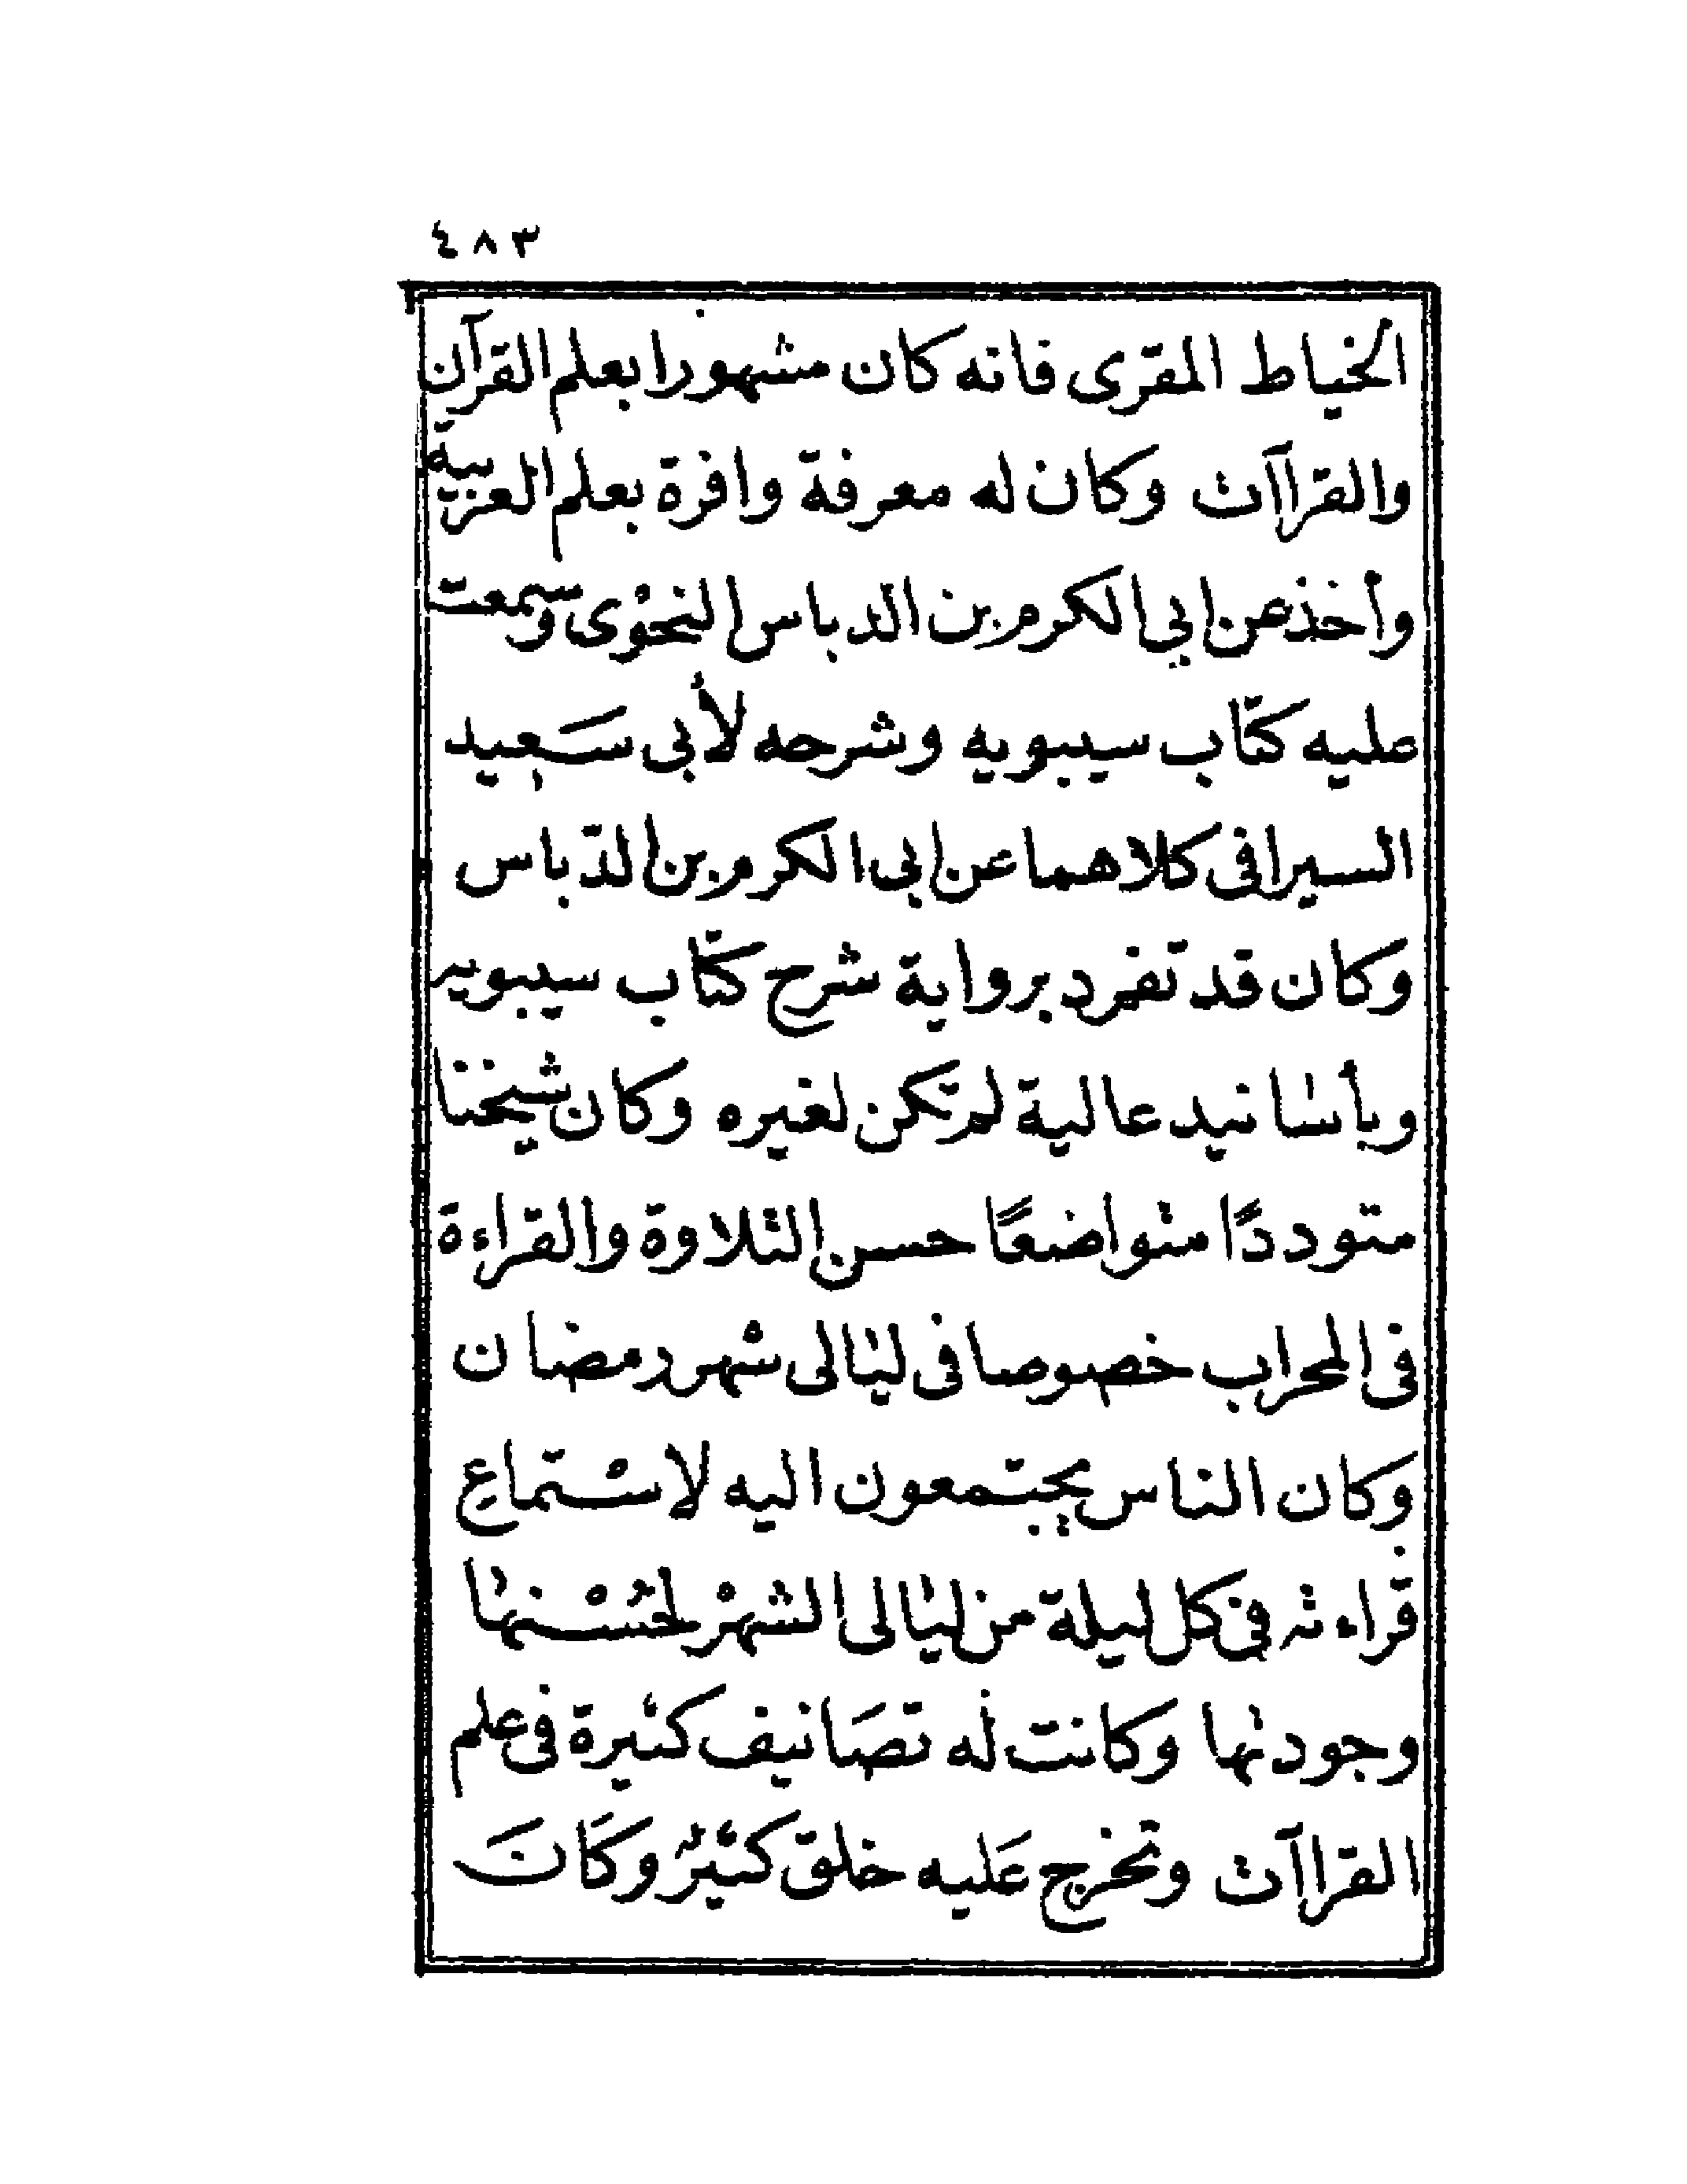 ٤٨٣
الخياط المقرى فانه كان مشهورا بعلم القرآن
والقراآت وكان له معرفة وافرة بعلم العربية
وأخذ عن ابى الكرم بن الدباس النحْوى وسمعت
عليه كتاب سيبويه وشرحه لأبى سَعيد
السيرافى كلاهما عن ابى الكرم بن الدّباس
وكان قد تفرد برواية شرح كتاب سيبويه
وبأسانيد عالية لم تكن لغيره وكان شيخنا
متوددًا متواضعًا حسن التلاوة والقراءة
فى المحراب خصوصا فى ليالى شهر رمضان
وكان الناس يجتمعون اليه لاسْتماعِ
قراءته فى كل ليلة من ليالى الشهْر لحُسْنها
وجودتها وكانت له تصَانيف كثيرة فى علم
القراآت وتخرج عَليه خلق كثيرٌ وكَانَ